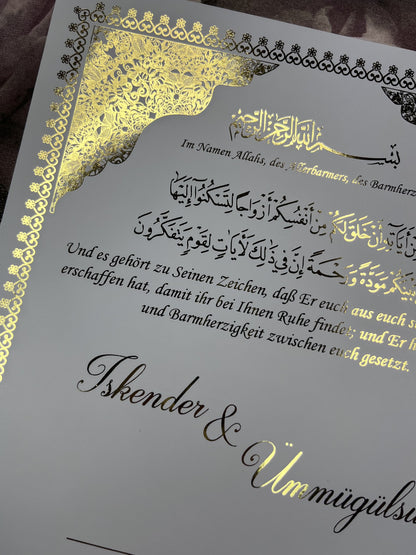 بسم الله الرحمن الرحيم
Im Namen Allahs, des Allerbarmers, des Barmherz
مِنْ آيَاتِهِ أَنْ خَلَقَ لَكُم مِّنْ أَنفُسِكُمْ أَزْوَاجًا لِّتَسْكُنُوا إِلَيْهَا
بَيْنَكُم مَّوَدَّةً وَرَحْمَةً إِنَّ فِي ذَٰلِكَ لَآيَاتٍ لِّقَوْمٍ يَتَفَكَّرُونَ
Und es gehört zu Seinen Zeichen, daß Er euch aus euch s
erschaffen hat, damit ihr bei Ihnen Ruhe findet; und Er h
und Barmherzigkeit zwischen euch gesetzt.
Iskender &
Ümmügülsü